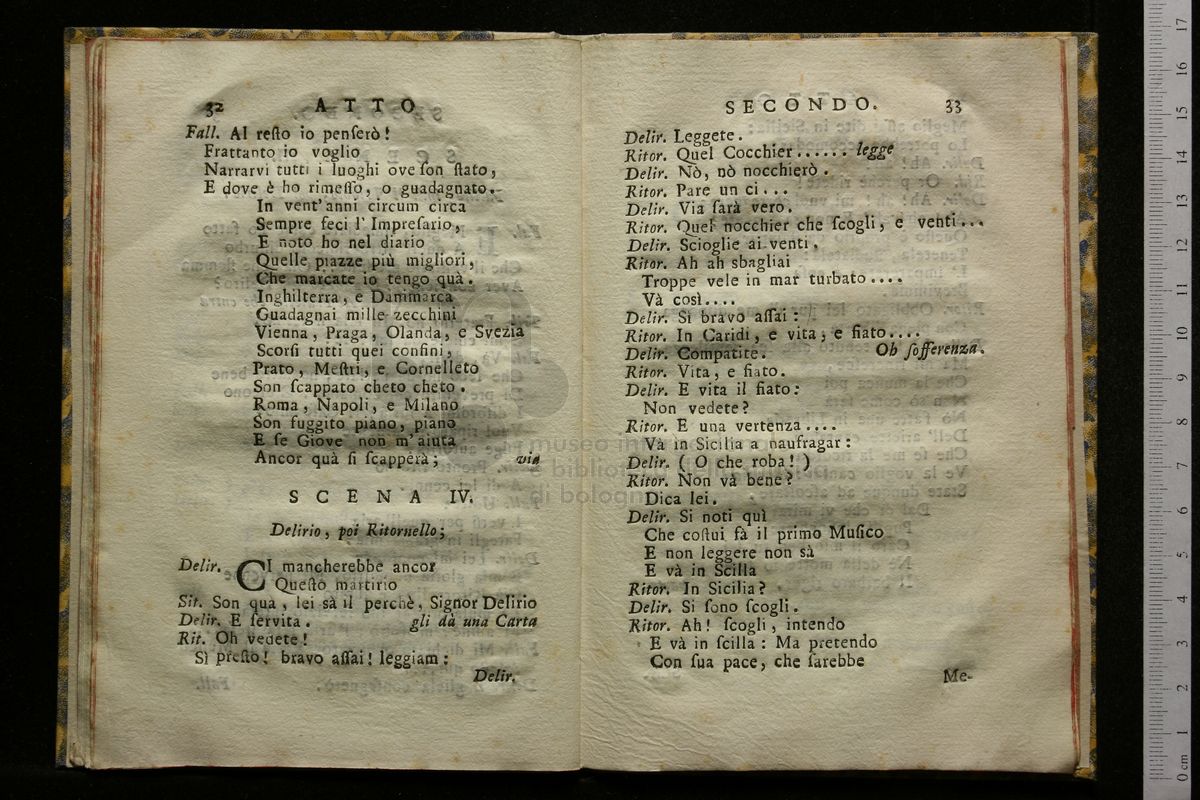 32 ATTO
Fall. Al reſto io penſerò!
Frattanto io voglio
Narrarvi tutti i luoghi ove ſon ſtato,
E dove è ho rimeſſo, o guadagnato.
In vent'anni circum circa
Sempre feci l' Impreſario,
E noto ho nel diario
Quelle piazze più migliori,
Che marcate io tengo quà.
Inghilterra, e Danimarca
Guadagnai mille zecchini
Vienna, Praga, Olanda, e Svezia
Scorſi tutti quei confini,
Prato, Meſtri, e Cornelleto
Son ſcappato cheto cheto.
Roma, Napoli, e Milano
Son fuggito piano, piano
E ſe Giove non m'aiuta
Ancor quà ſi ſcapperà; via
SCENA IV.
Delirio, poi Ritornello;
Delir. CI mancherebbe ancor
Queſto martirio
Sit. Son qua, lei sà il perchè, Signor Delirio
Delir. E ſervita. gli dà una Carta
Rit. Oh vedete!
Sì preſto! bravo aſſai! leggiam:
Delir.
SECONDO. 33
Delir. Leggete.
Ritor. Quel Cocchier...... legge
Delir. Nò, nò nocchierò.
Ritor. Pare un ci...
Delir. Via ſarà vero.
Ritor. Quel nocchier che ſcogli, e venti...
Delir. Scioglie ai venti.
Ritor. Ah ah sbagliai
Troppe vele in mar turbato....
Và così....
Delir. Sì bravo aſſai:
Ritor. In Caridi, e vita, e fiato....
Delir. Compatite. Oh ſofferenza.
Ritor. Vita, e fiato.
Delir. E vita il fiato:
Non vedete?
Ritor. E una vertenza....
Và in Sicilia a naufragar:
Delir. (O che roba!)
Ritor. Non và bene?
Dica lei.
Delir. Si noti quì
Che coſtui fà il primo Muſico
E non leggere non sà
E và in Scilla
Ritor. In Sicilia?
Delir. Si ſono ſcogli.
Ritor. Ah! ſcogli, intendo
E và in ſcilla: Ma pretendo
Con ſua pace, che ſarebbe
Me-